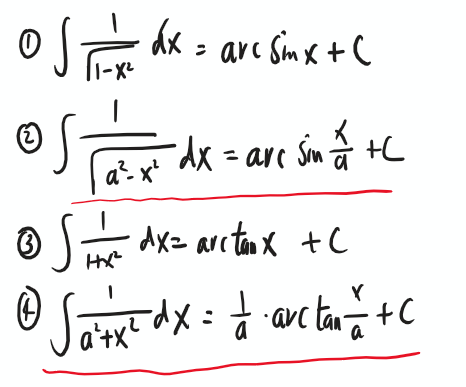 ① ∫ 1/√(1-x²) dx = arc sin x + C
② ∫ 1/√(a²-x²) dx = arc sin x/a + C
③ ∫ 1/(1+x²) dx = arctan x + C
④ ∫ 1/(a²+x²) dx = 1/a · arctan x/a + C